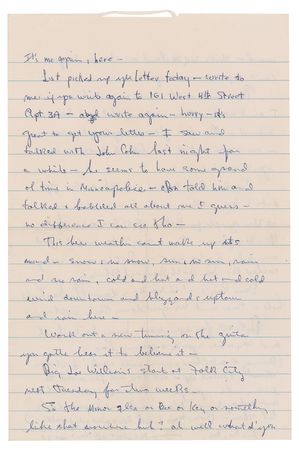 It's me again, here –
Just picked up yr letter today – write to
me if you write again to 161 West 4th Street
Apt. 3A – and write again – hurry – it's
great to get your letter – I saw and
talked with John Cohn last night for
a while – he seems to have some
of time in Minneapolis – told him and
talked & babbled all about me I guess –
no difference I can see tho –
This here weather can't make up its
mind – snow & no snow, sun & no sun, rain
and no rain, cold and hot and hot and cold
wind downtown and blizzard uptown
and rain here –
Work out a new tuning on the guitar
you gotta hear it to believe it –
Big Joe Williams start at Folk City
next Tuesday for two weeks –
So the or Dee or Key or something
like that somewhere huh? ah well what d'you